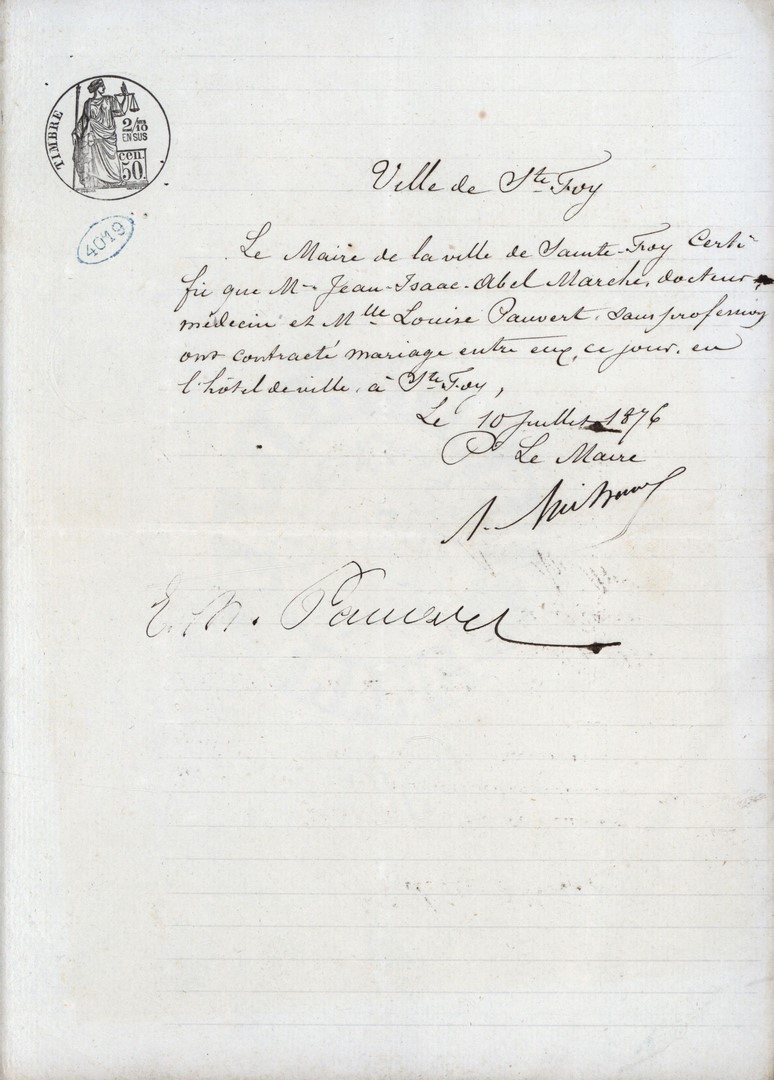 TIMBRE
2/10
EN SUS
cen.
50.
4019
Ville de Ste Foy
Le Maire de la ville de Sainte-Foy Certi-
fie que Mr Jean-Isaac-Abel Marche, docteur
médecin et Mlle Louise Pauvert, sans profession
ont contracté mariage entre eux, ce jour, en
l'hôtel de ville, à Ste Foy,
Le 10 Juillet 1876
Pr Le Maire
A.
E. M. Pauvert